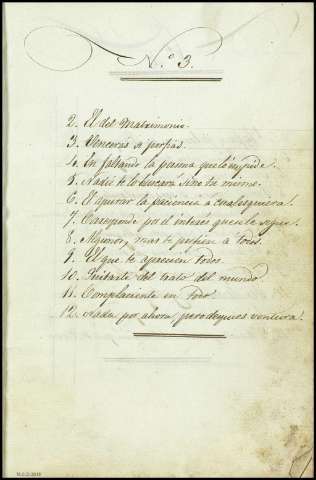 N.º 3.
2. El del Matrimonio.
3. Venceras a porfias.
4. En faltando la persona que lo impide.
5. Nadie te lo buscará sino tu mismo.
6. El apurar la paciencia a cualesquiera.
7. Corresponde por el interés que se le sigue.
8. Algunos, mas te prefieren a todos.
9. El que te aprecien todos.
10. Quitarte del trato del mundo.
11. Complaciente en todo.
12. Nada por ahora, pero despues ventura.